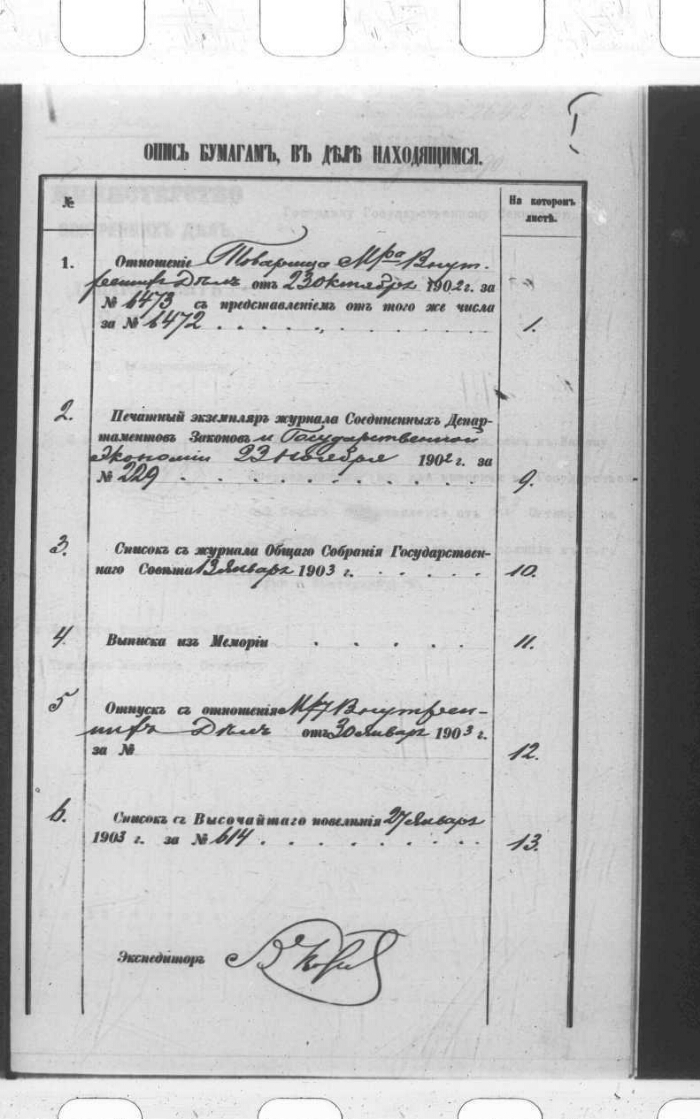 I
ОПИСЬ БУМАГАМЪ, ВЪ ДѢЛѢ НАХОДЯЩИМСЯ.
№
На которомъ
листѣ.
1. Отношеніе Товарища Мра Внут-
реннихъ Дѣлъ отъ 23 Октября 1902 г. за
№ 6473 съ представленіемъ отъ того же числа
за № 6472 . . . „ . . . . . 1.
2. Печатный экземпляръ журнала Соединенныхъ Депар-
таментовъ Законовъ и Государственной
Экономіи 23 Ноября 1902 г. за
№ 229 . . . . . . . . . 9.
3. Списокъ съ журнала Общаго Собранія Государствен-
наго Совѣта 13 Января 1903 г. . . . . . 10.
4. Выписка изъ Меморіи . . . . . 11.
5 Отпускъ съ отношенія Мру Внутрен-
нихъ Дѣлъ отъ 30 Января 1903 г.
за № 12.
6. Списокъ съ Высочайшаго повелѣнія 27 Января
1903 г. за № 614 . . . . . . . . . 13.
Экспедиторъ